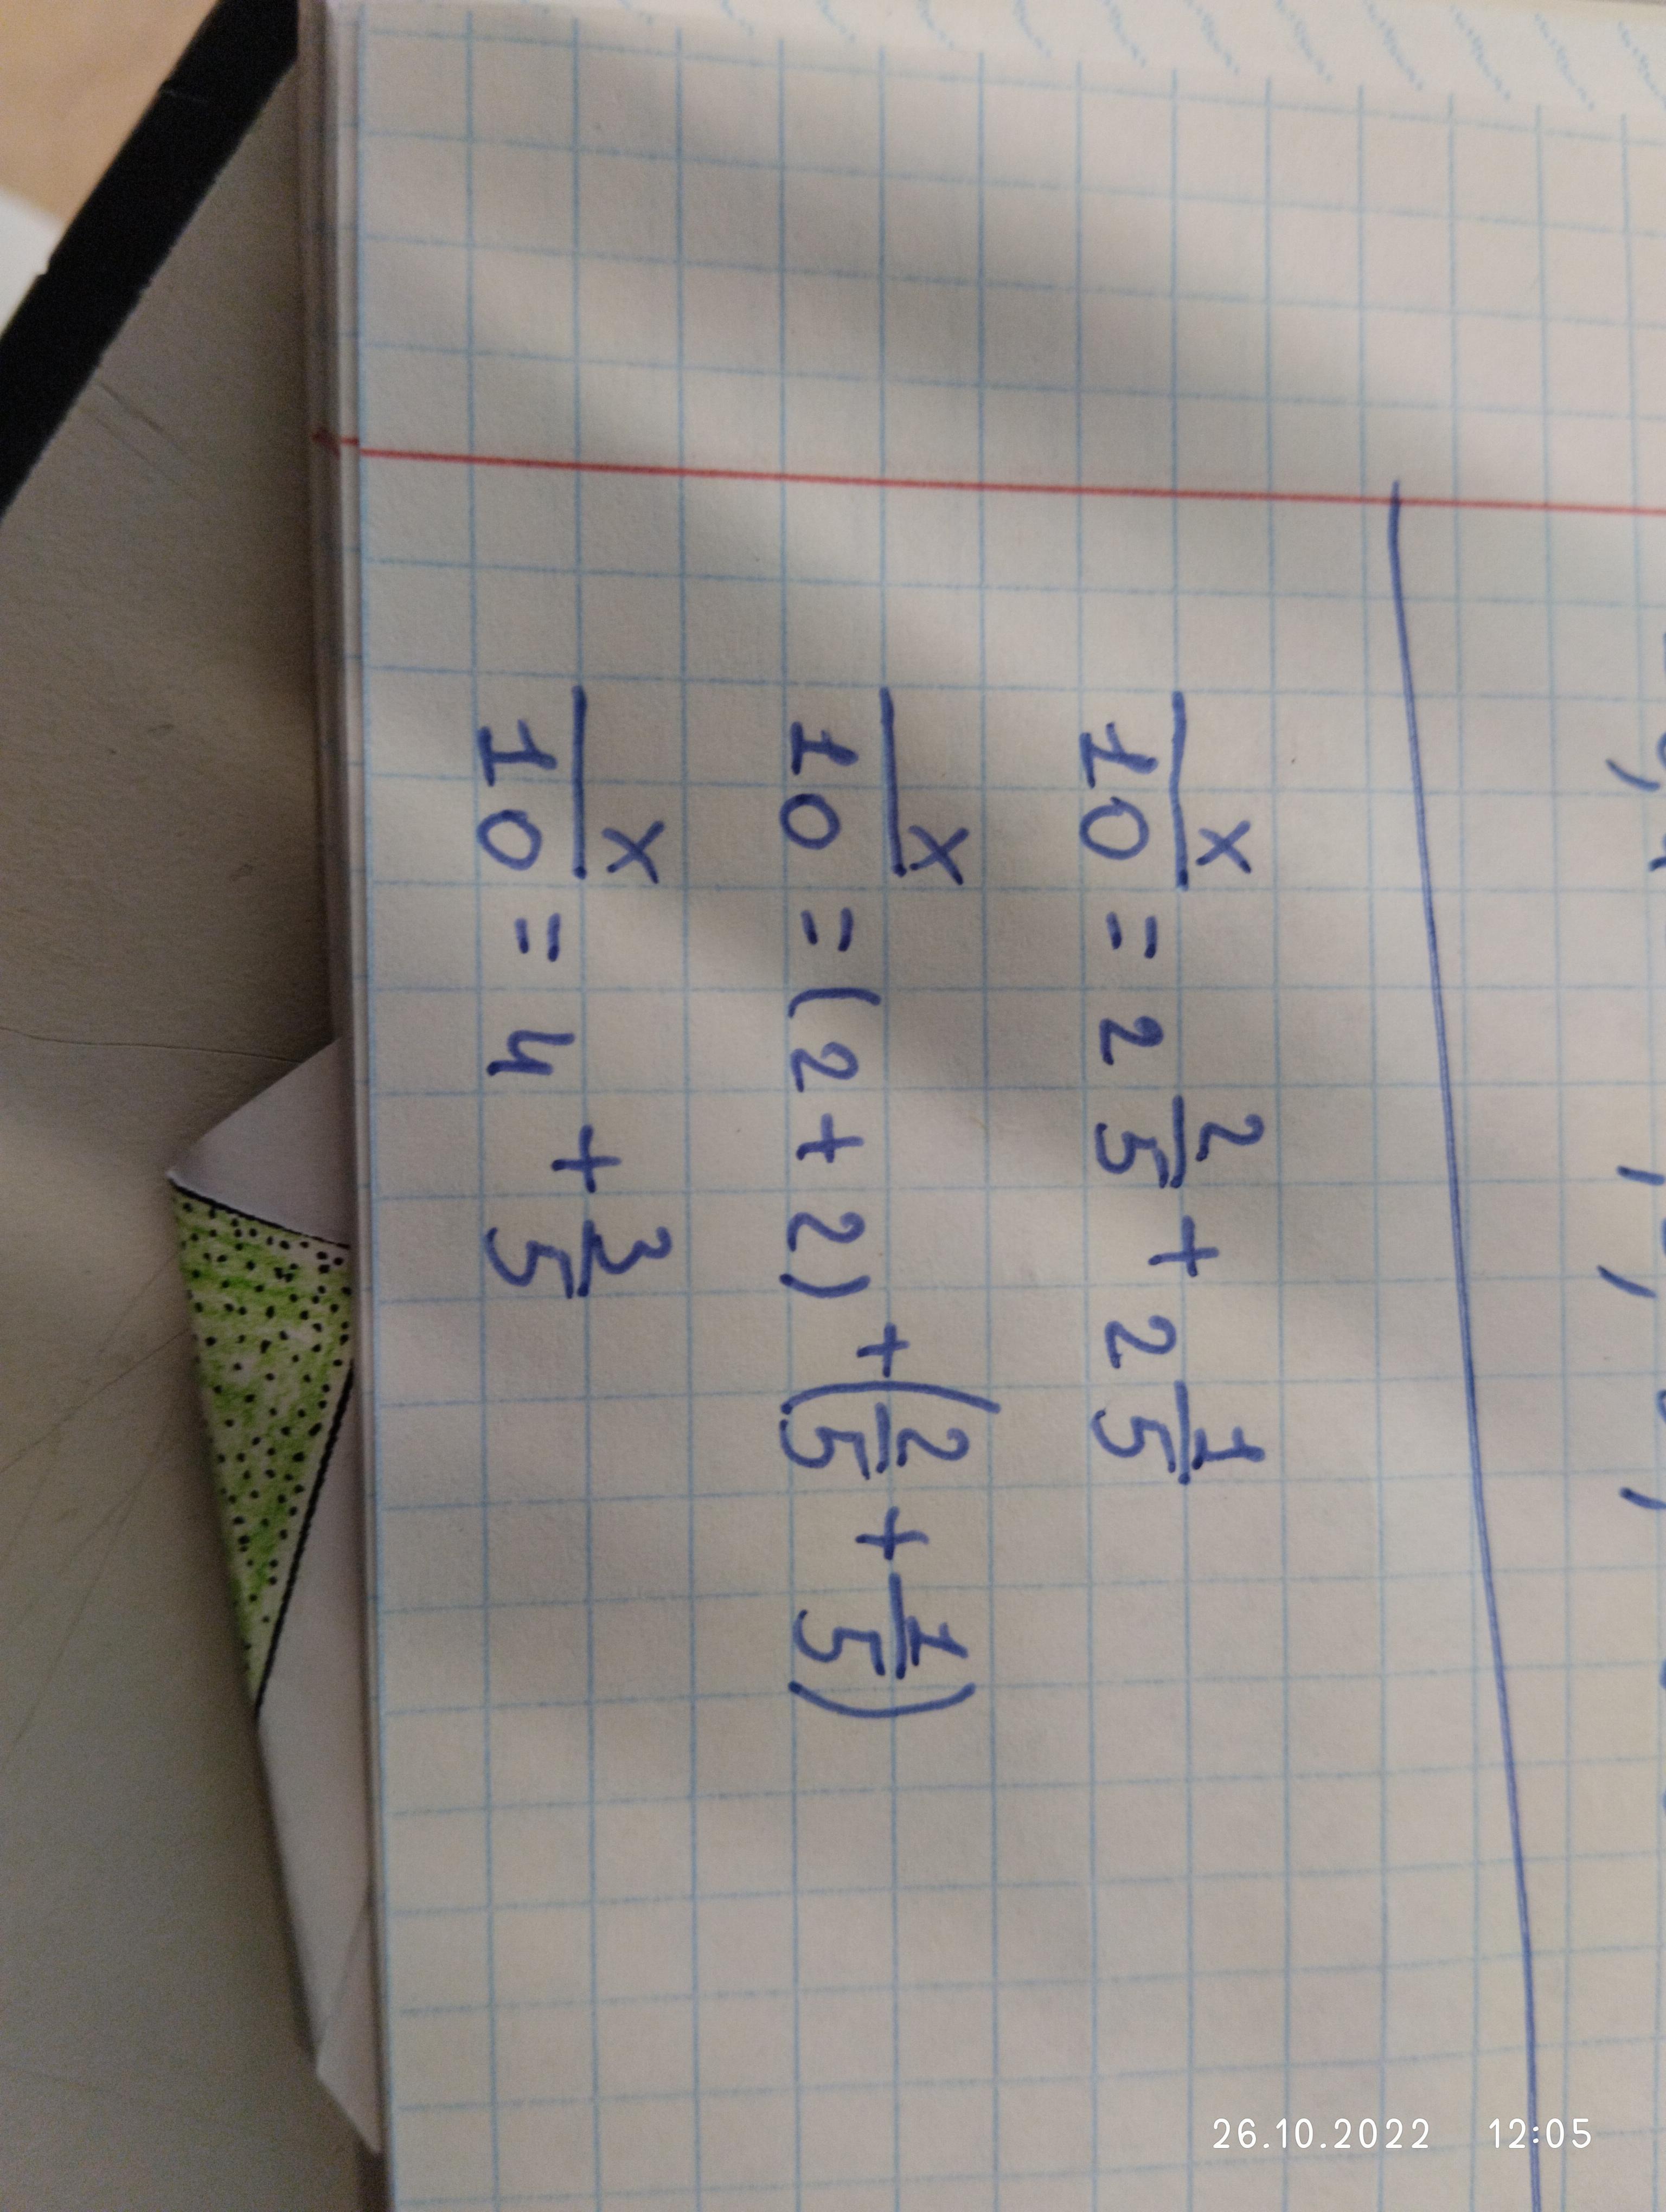 x/10 = 2 2/5 + 2 1/5
x/10 = (2 + 2) + (2/5 + 1/5)
x/10 = 4 + 3/5
26.10.2022 12:05